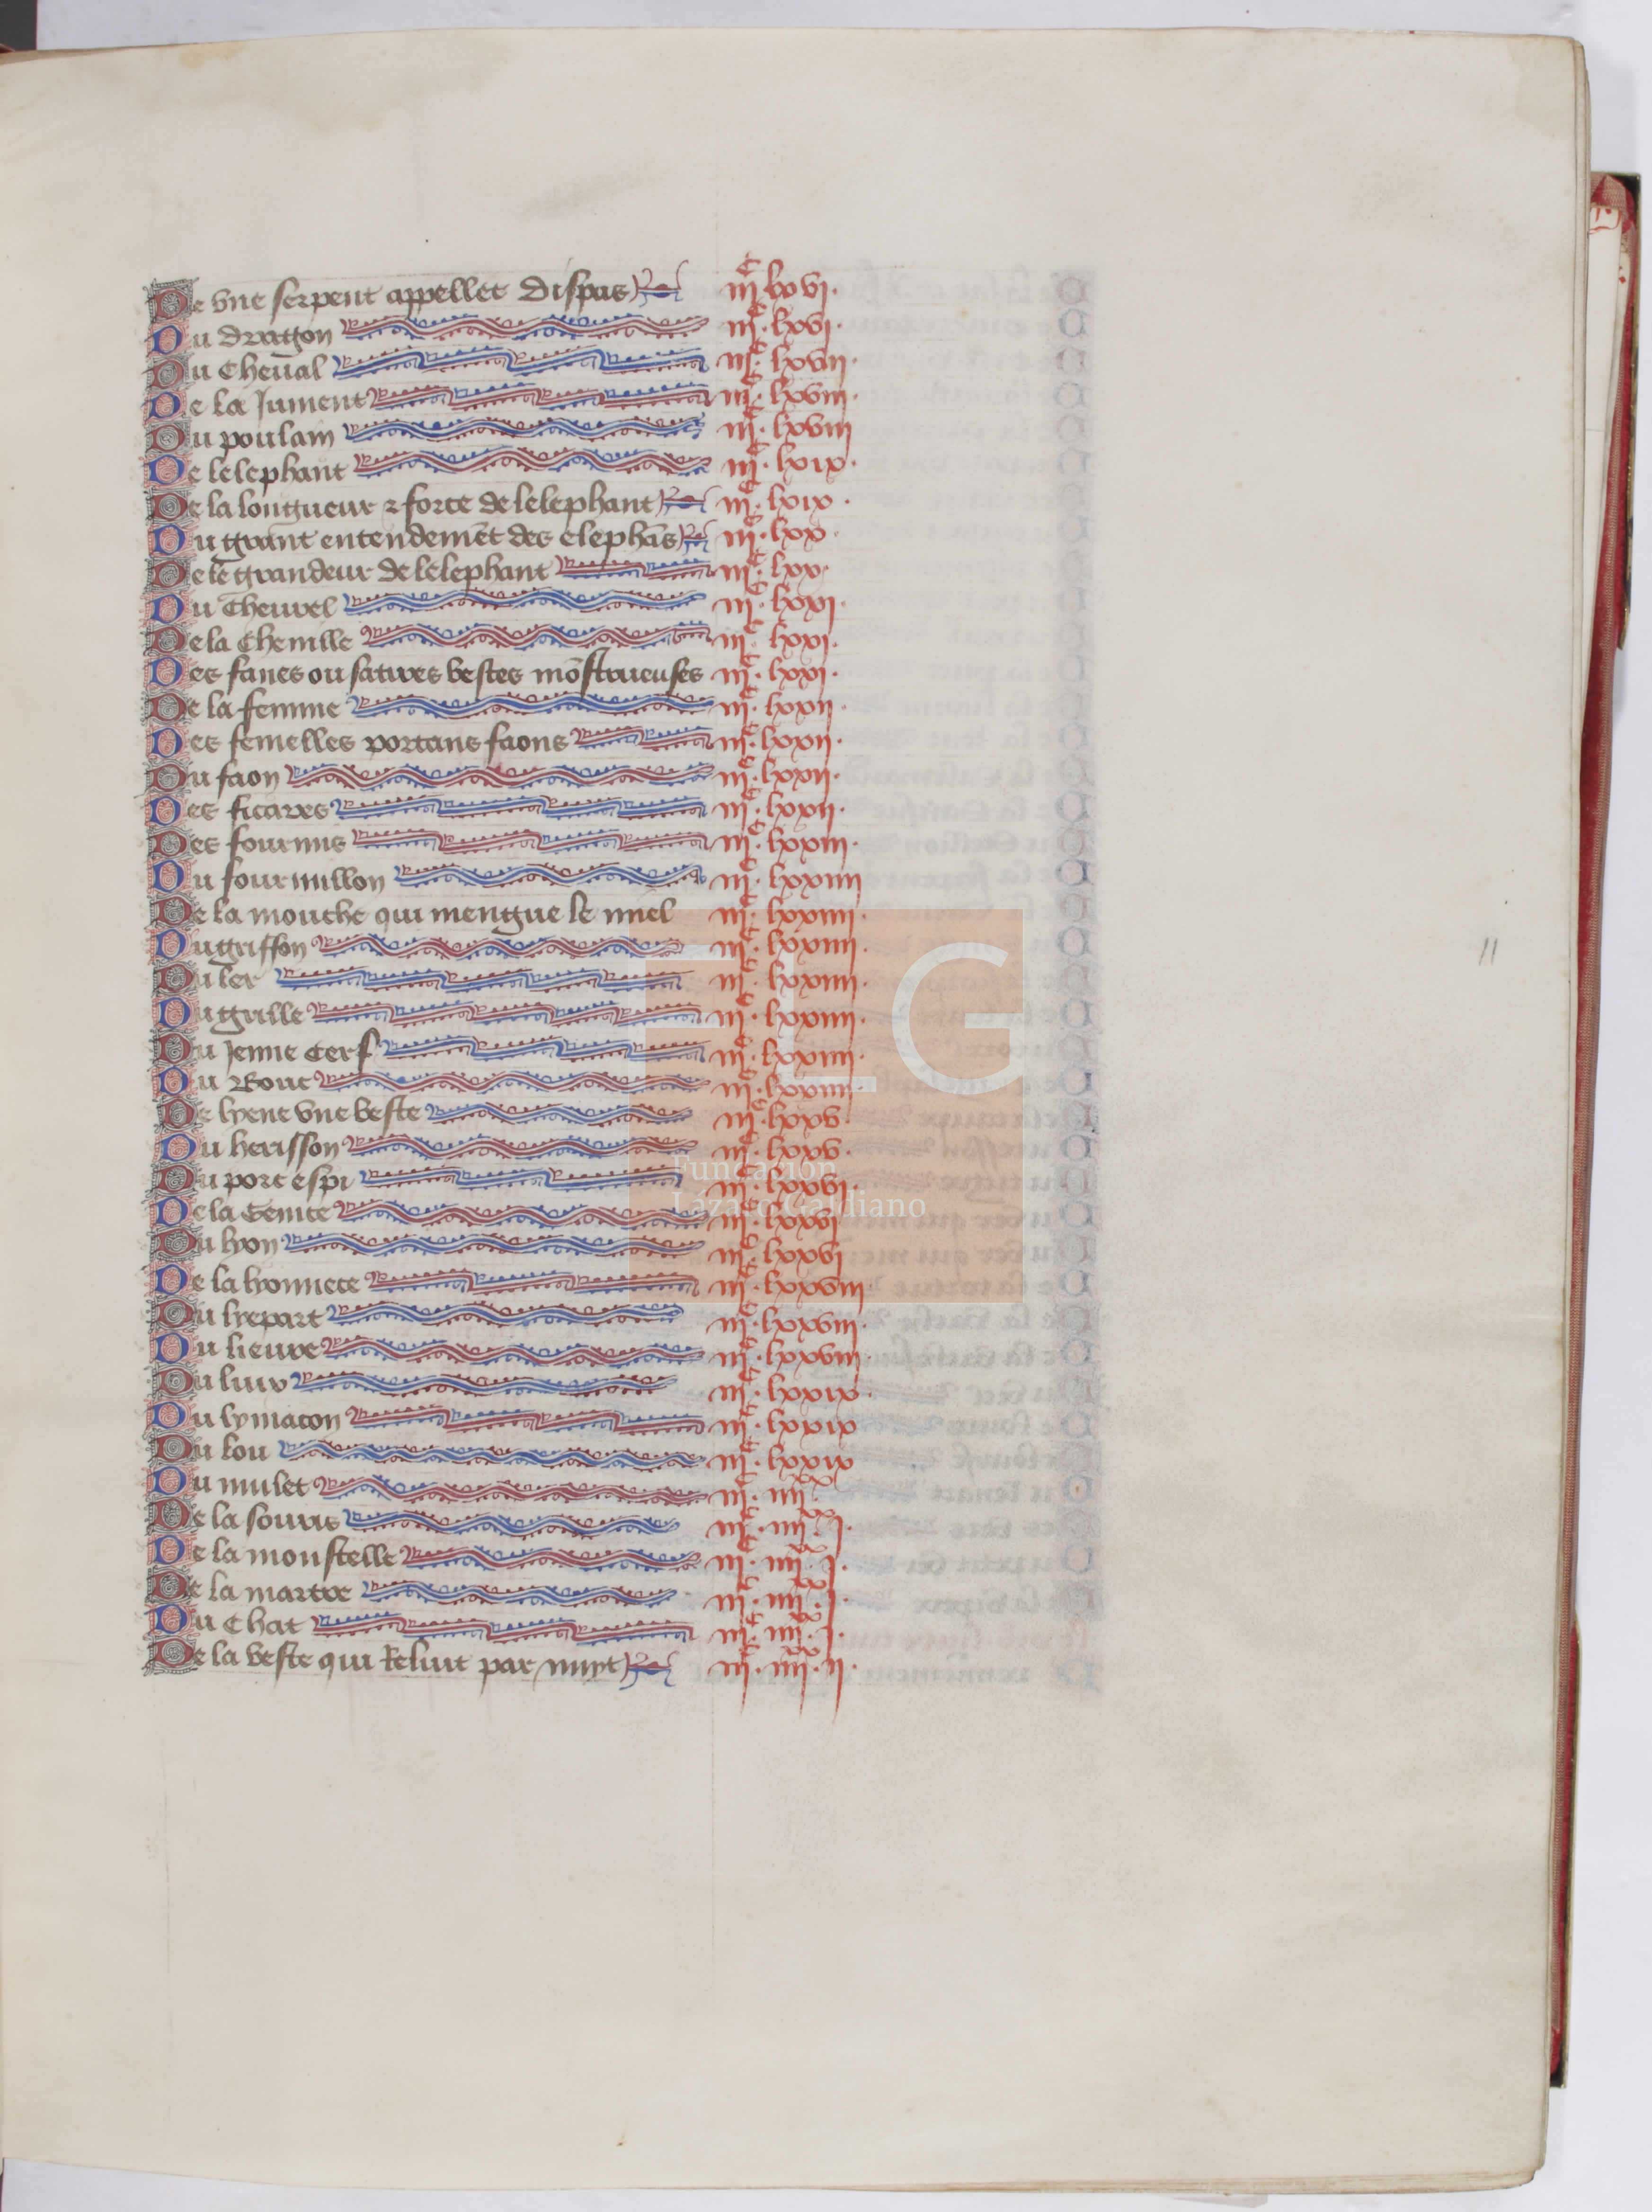 De vne serpent appellee dispas iiiᶜ lxvi.
Du dragon iiiᶜ. lxvi.
Du Cheual iiiᶜ. lxvii.
De la Jument iiiᶜ. lxviii.
Du poulain iiiᶜ. lxviii
De lelephant iiiᶜ. lxix.
De la longueur & force de lelephant iiiᶜ. lxix.
Du grant entendemēt des elephās iiiᶜ. lxx.
De le grandeur de lelephant iiiᶜ. lxx.
Du Cheurel iiiᶜ. lxxi.
De la Chenille iiiᶜ. lxxi.
Des fanes ou satires bestes mōstrueuses iiiᶜ. lxxi.
De la femme iiiᶜ. lxxii.
Des femelles portans faons iiiᶜ. lxxii.
Du faon iiiᶜ. lxxii.
Des ficaires iiiᶜ. lxxii.
Des fourmis iiiᶜ. lxxiii.
Du fourmillon iiiᶜ. lxxiiii
De la mouche qui mengue le miel iiiᶜ. lxxiiii.
Du griffon iiiᶜ. lxxiiii.
Du ler iiiᶜ. lxxiiii.
Du grille iiiᶜ. lxxiiii.
Du Jenne cerf iiiᶜ. lxxiiii.
Du Bouc iiiᶜ. lxxiiii
De lyene vne beste iiiᶜ. lxxv.
Du herisson iiiᶜ. lxxv.
Du porc espi iiiᶜ. lxxvi.
De la Genice iiiᶜ. lxxvi
Du lyon iiiᶜ. lxxvi
De la lyonnece iiiᶜ. lxxviii
Du lyepart iiiᶜ. lxxviii.
Du lieure iiiᶜ. lxxviii.
Du iiiᶜ. lxxix.
Du lymacon iiiᶜ. lxxix
Du lou iiiᶜ. lxxix
Du mulet iiiᶜ. iiiiˣˣ.
De la souris iiiᶜ. iiiiˣˣ. i.
De la moustelle iiiᶜ. iiiiˣˣ. i.
De la martre iiiᶜ. iiiiˣˣ. i.
Du Chat iiiᶜ. iiiiˣˣ. i.
De la beste qui Reluit par nuyt iiiᶜ. iiiiˣˣ. ii.
11
FLG
Fundación
Lázaro Galdiano